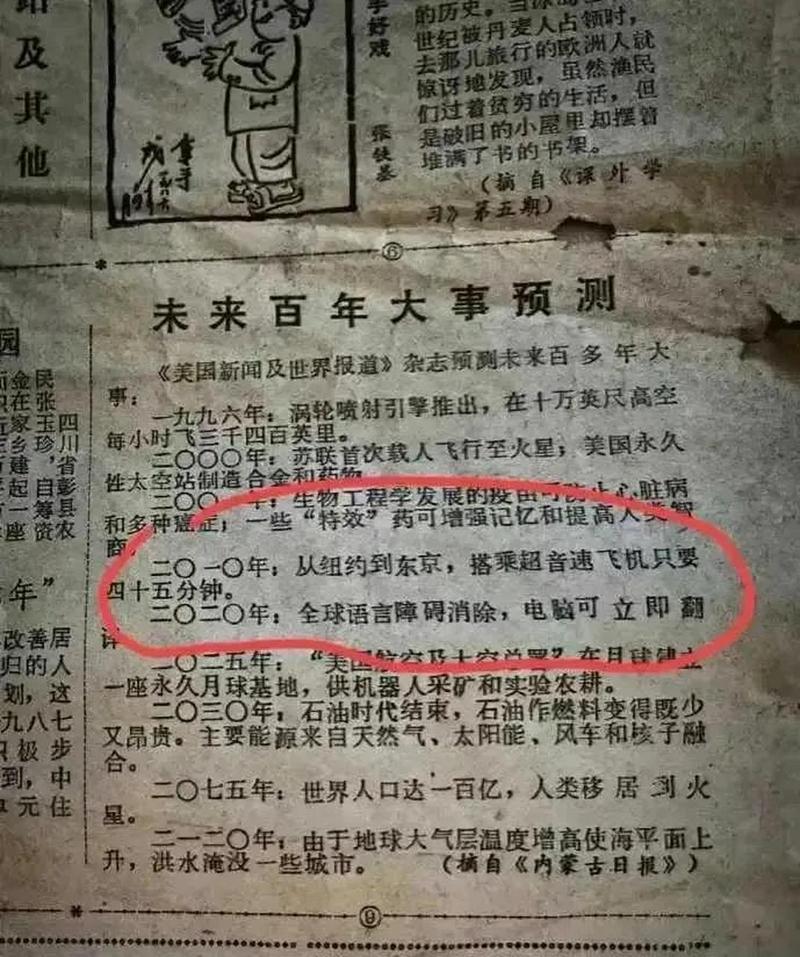 及其他
好戏
张铁基
的历史。
世纪被丹麦人占领时,
去那儿旅行的欧洲人就
惊讶地发现,虽然渔民
们过着贫穷的生活,但
是破旧的小屋里却摆着
堆满了书的书架。
(摘自《课外学
习》第五期)
⑥
未来百年大事预测
《美国新闻及世界报道》杂志预测未来百多年大
事:
一九九六年:涡轮喷射引擎推出,在十万英尺高空
每小时飞三千四百英里。
二〇〇〇年:苏联首次载人飞行至火星;美国永久
性太空站制造合金和药物。
二〇〇 年:生物工程学发展的疫苗可防止心脏病
和多种癌症;一些“特效”药可增强记忆和提高人类智
商。
二〇一〇年:从纽约到东京,搭乘超音速飞机只要
四十五分钟。
二〇二〇年:全球语言障碍消除,电脑可立即翻
译
二〇二五年:“美国航空及太空总署”在月球建立
一座永久月球基地,供机器人采矿和实验农耕。
二〇三〇年:石油时代结束,石油作燃料变得既少
又昂贵。主要能源来自天然气、太阳能、风车和核子融
合。
二〇七五年:世界人口达一百亿,人类移居到火
星。
二一二〇年:由于地球大气层温度增高使海平面上
升,洪水淹没一些城市。(摘自《内蒙古日报》)
⑨
园
四川省彭县农
民张玉珍,自筹资
金在家乡建起一座
年”
改善居
归的人
划,这
九八七
积极步
到,中
单元住